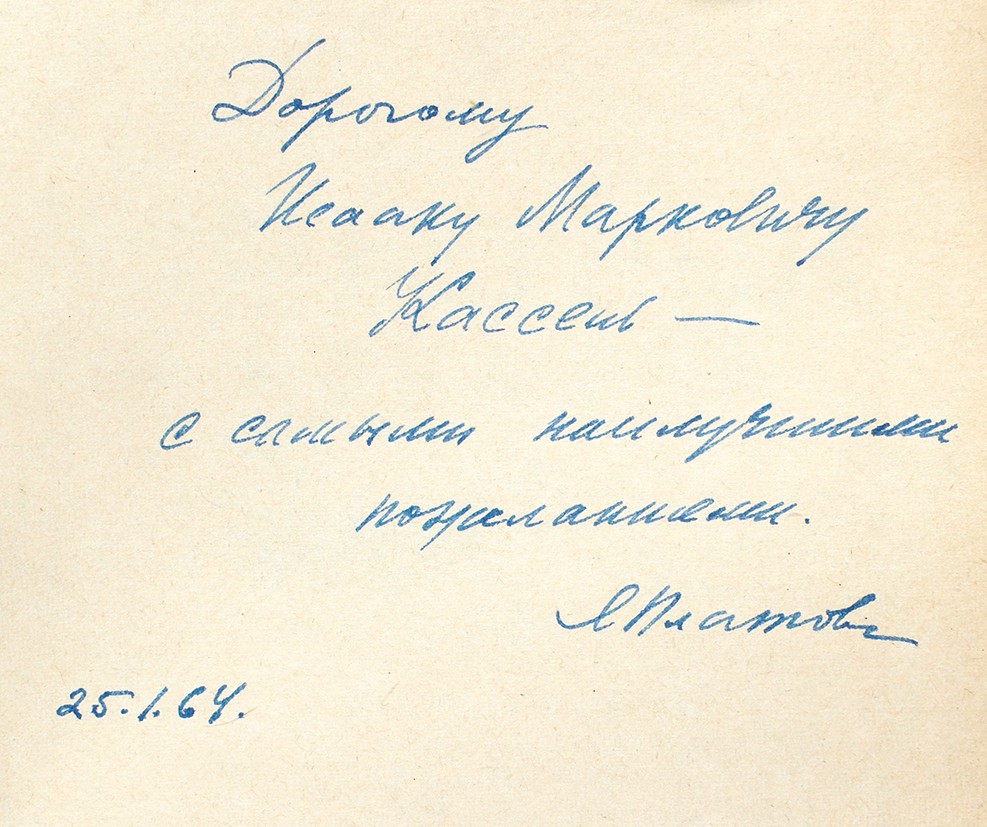 Дорогому
Исааку Марковичу
Кассель —
с самыми наилучшими
пожеланиями.
Я Платов
25.1.64.